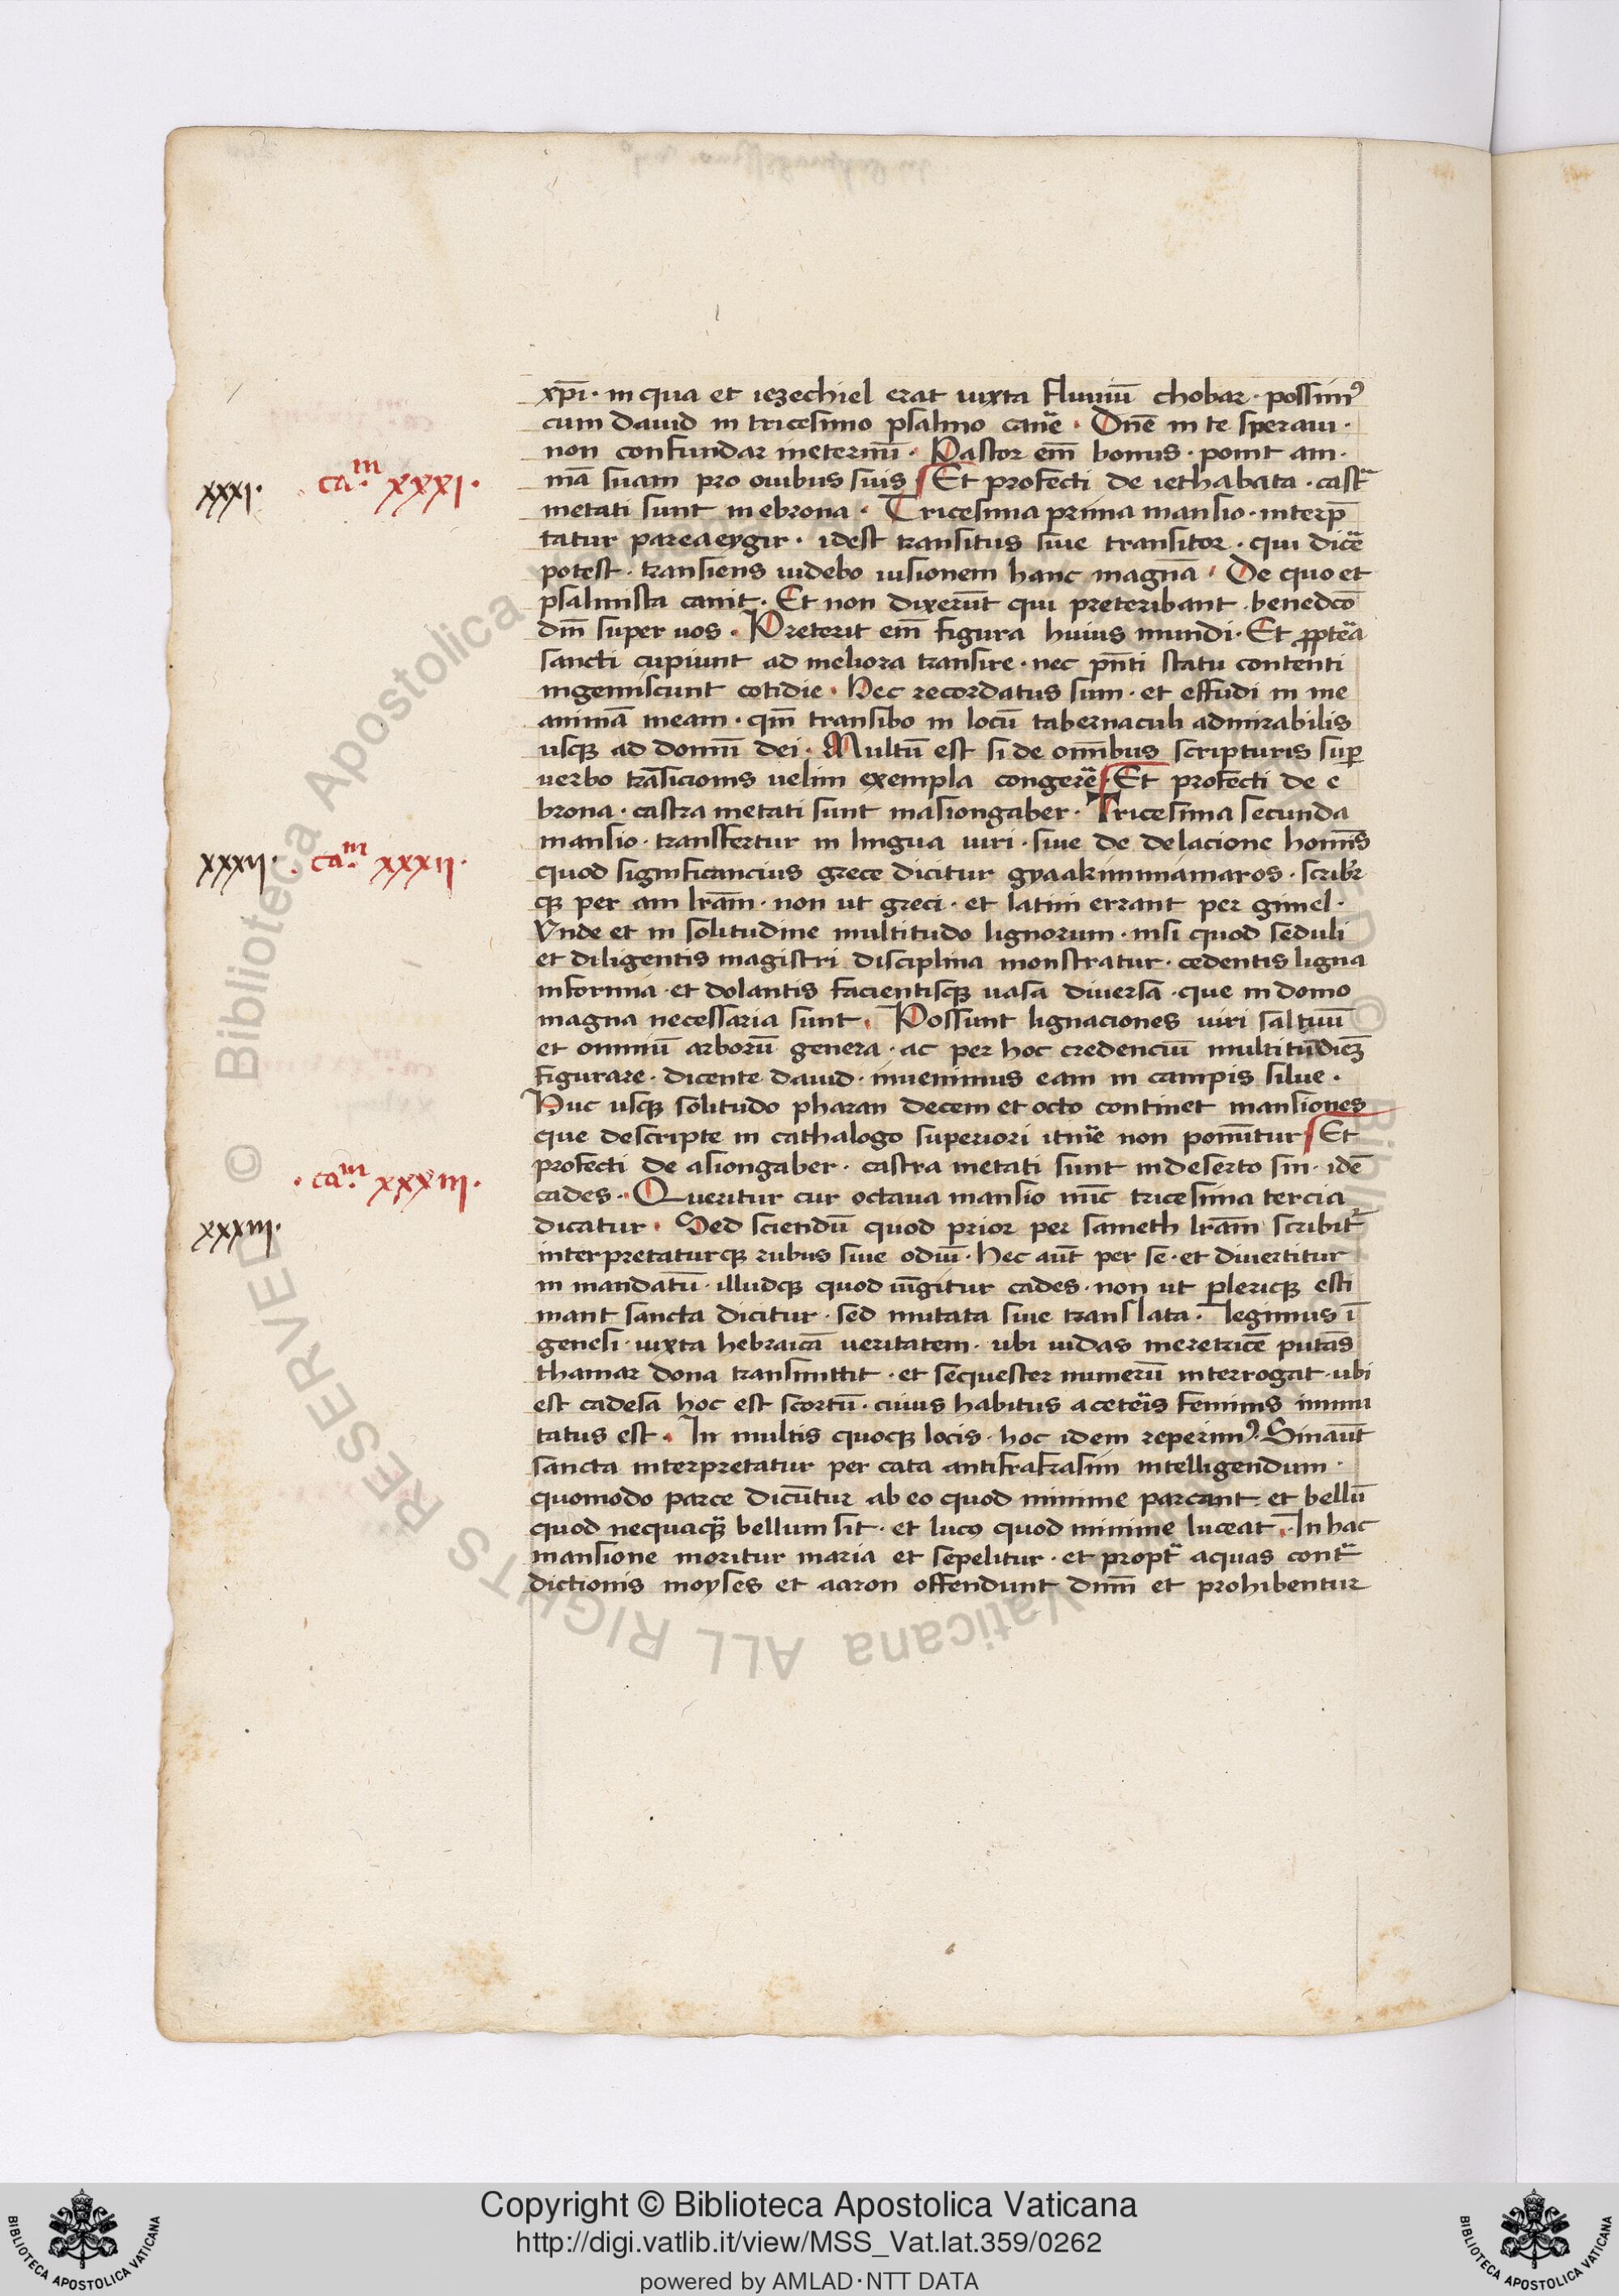 xp̄i · in qua et iezechiel erat iuxta fluuiū chobar · possim⁹
cum dauid in tricesimo psalmo canẽ · Dn̄e in te speraui ·
non confundar ineternū · Pastor em̄ bonus · ponit ani
mā suam pro ouibus suis Et profecti de iethabata · castr̃
metati sunt in ebrona · Tricesima prima mansio · interp̄
tatur pareaeygir · idest transitus siue transitor · qui dicẽ
potest · transiens uidebo uisionem hanc magnā · De quo et
psalmista canit · Et non dixerūt qui preteribant · benedcō
dn̄i super uos · Preterit em̄ figura huius mundi · Et ꝓptẽa
sancti cupiunt ad meliora transire · nec pn̄ti statu contenti
ingemiscunt cotidie · Hec recordatus sum · et effudi in me
animā meam · qm̄ transibo in locū tabernaculi admirabilis
usqꝫ ad domū dei · Multū est si de om̄ibus scripturis suꝑ
uerbo trāsicionis uelim exempla congerẽ · Et profecti de e
brona · castra metati sunt in asiongaber · Tricesima secunda
mansio · transfertur in lingua uiri · siue de delacione homīs
quod significancius grece dicitur gyaakinunamaros · scribr̃
qꝫ per ain lrām · non ut greci · et latini errant per gimel ·
Vnde et in solitudine multitudo lignorum · nisi quod seduli
et diligentis magistri disciplina monstratur · cedentis ligna
informia · et dolantis facientisqꝫ uasa diuersa · que in domo
magna necessaria sunt · Possunt lignaciones uiri saltuū
et omniū arborū genera · ac per hoc credenciū multitudiēꝫ
figurare · dicente dauid · inuenimus eam in campis silue ·
Huc usqꝫ solitudo pharan decem et octo continet mansiones
que descripte in cathalogo superiori itinẽ non ponūtur Et
profecti de asiongaber · castra metati sunt in deserto sin · idē
cades · Queritur cur octaua mansio nūc tricesima tercia
dicatur · Sed sciendū quod prior per sameth lrām scribit̃
interpretaturqꝫ rubus siue odiū · hec aūt per se · et diuertitur
in mandatū · illudqꝫ quod iūgitur cades · non ut pleriqꝫ esti
mant sancta dicitur · sed mutata siue translata · legimus ī
genesi · iuxta hebraicā ueritatem · ubi iudas meretricē putās
thamar dona transmittit · et sequester munerū interrogat · ubi
est cadesa hoc est scortū · cuius habitus a cetẽis feminis inmu
tatus est · In multis quoqꝫ locis · hoc idem reperim⁹ · Sin aūt
sancta interpretatur per cata antifrasim intelligendum ·
quomodo parce dicūtur ab eo quod minime parcant · et bellū
quod nequaqꝫ̃ bellum sit · et luc⁹ quod minime luceat · In hac
mansione moritur maria et sepelitur · et propt̃ aquas cont̃
dictionis moyses et aaron offendunt dn̄m et prohibentur
xxxi · caᵐ · xxxi ·
xxxii · · caᵐ xxxii ·
· caᵐ xxxiii ·
xxxiii ·
© Biblioteca Apostolica Vaticana ALL RIGHTS RESERVED
Copyright © Biblioteca Apostolica Vaticana
http://digi.vatlib.it/view/MSS_Vat.lat.359/0262
powered by AMLAD·NTT DATA
BIBLIOTECA APOSTOLICA VATICANA
BIBLIOTECA APOSTOLICA VATICANA